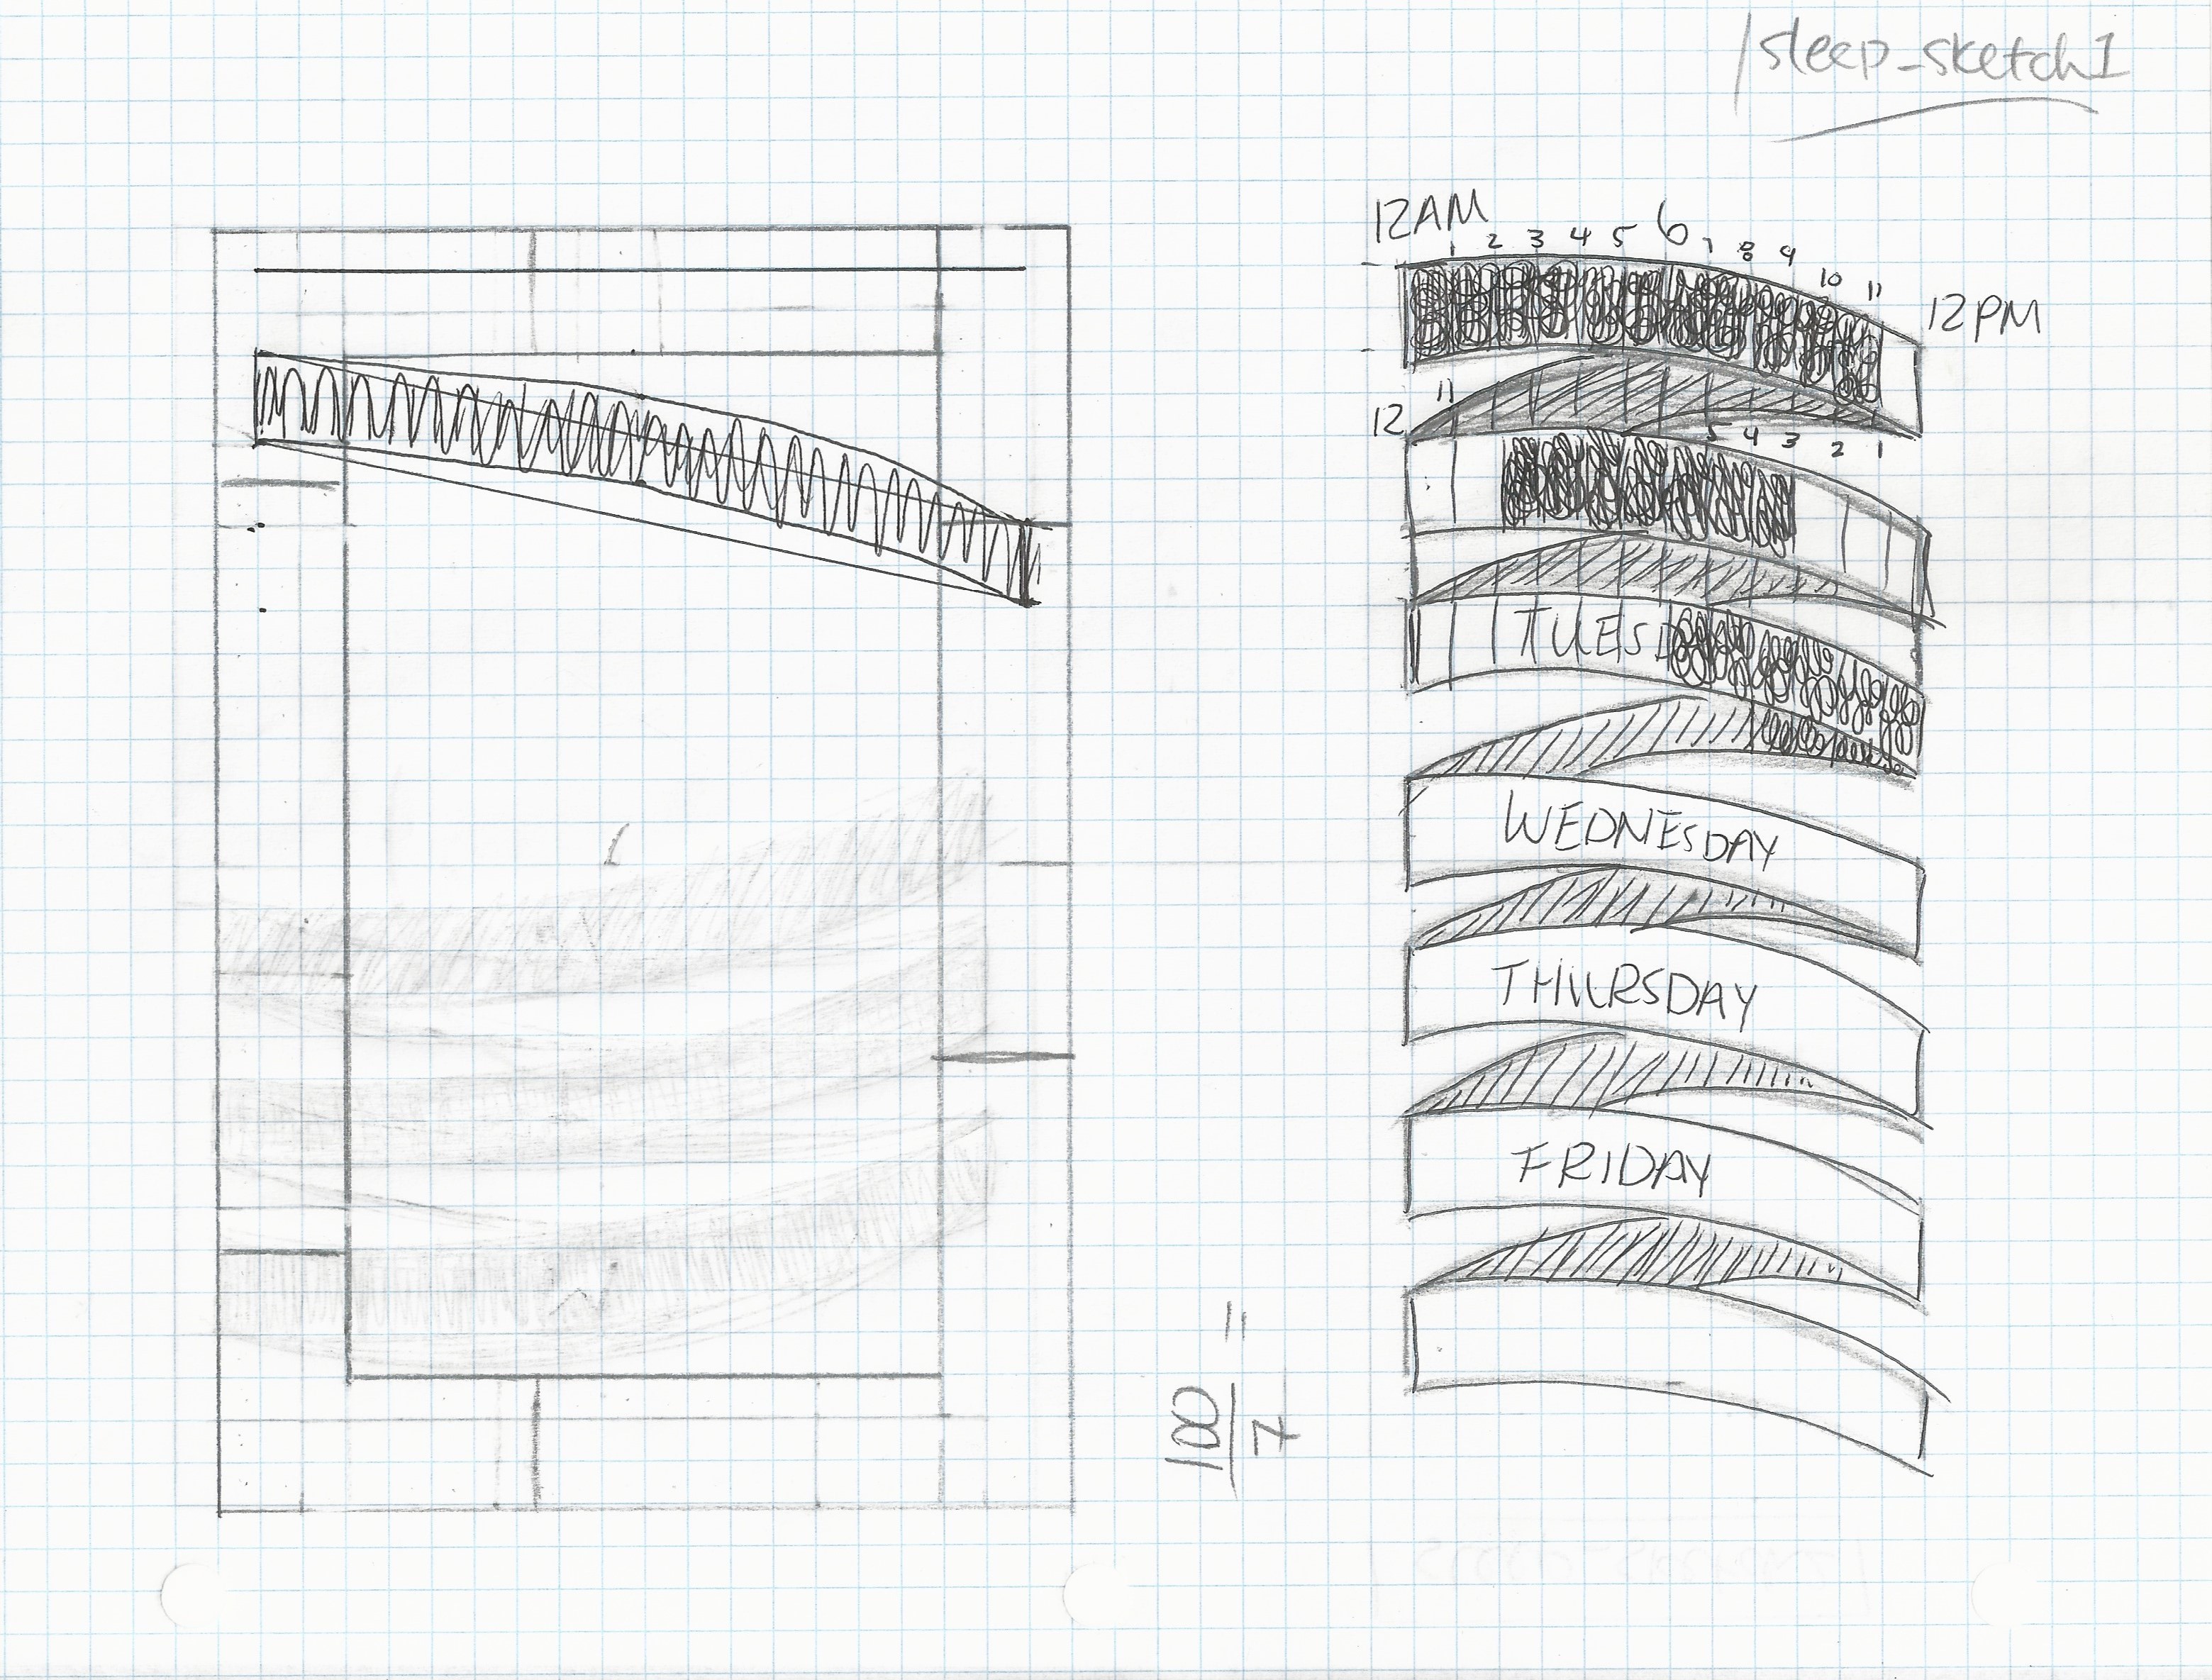 /sleep_sketch1
12AM 1 2 3 4 5 6 7 8 9 10 11 12PM
12 11 5 4 3 2 1
TUESD
WEDNESDAY
THURSDAY
FRIDAY
100/7 =